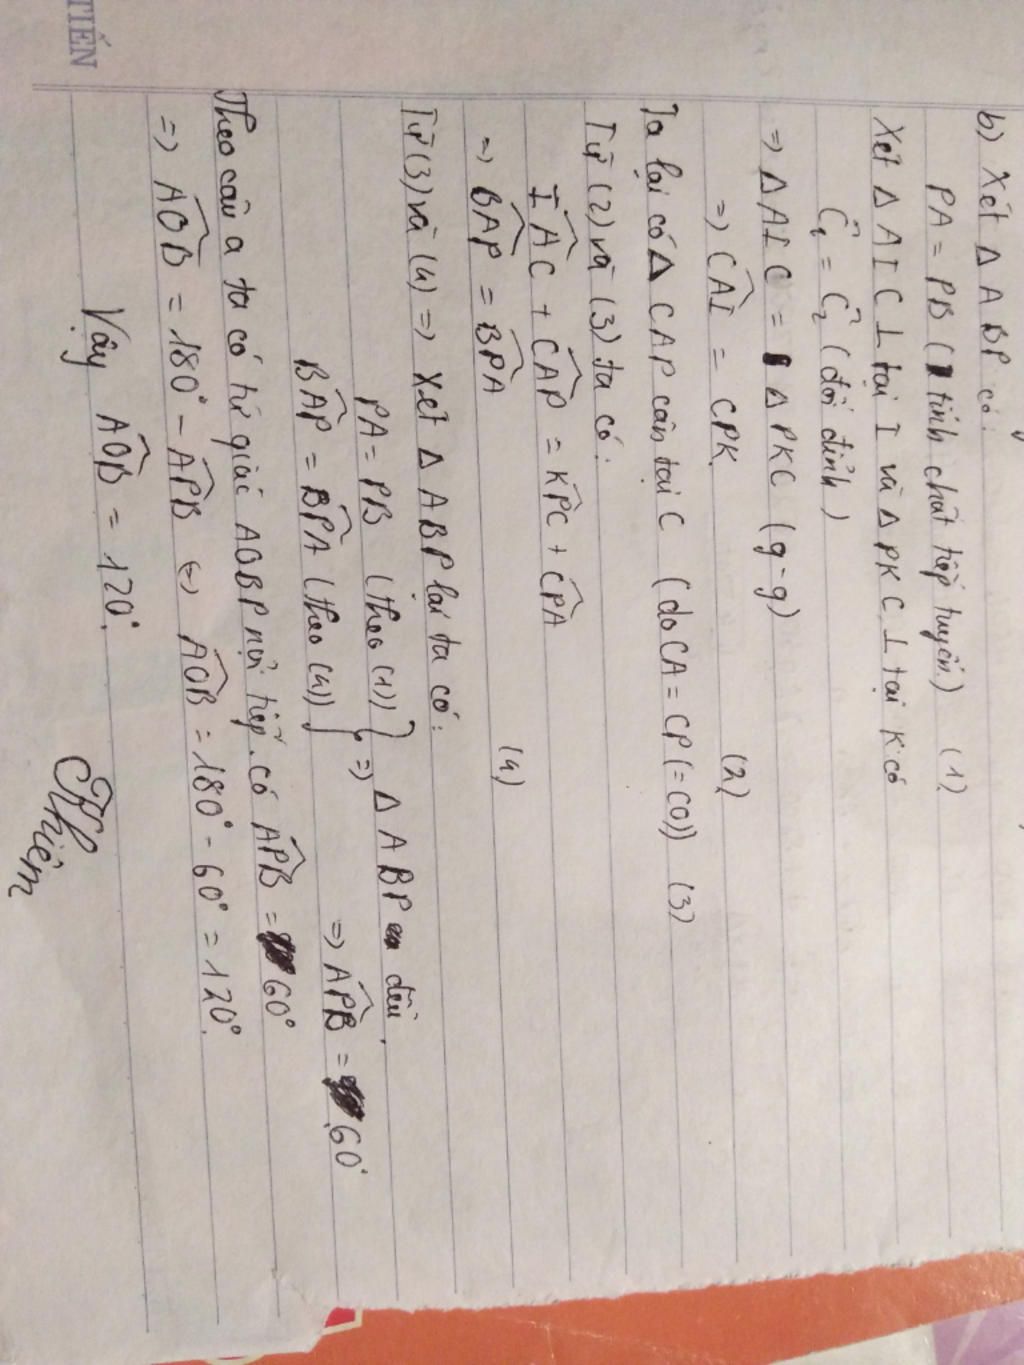 TIẾN
b) Xét Δ ABP có:
PA = PB ( tính chất tiếp tuyến) (1)
Xét Δ AIC ⊥ tại I và Δ PKC ⊥ tại K có
Ĉ₁ = Ĉ₂ (đối đỉnh)
=> Δ AIC = Δ PKC (g-g)
=> CÂI = CPK (2)
Ta lại có Δ CAP cân tại C (do CA = CP (= CO)) (3)
Từ (2) và (3) ta có:
IÂC + CÂP = KP̂C + CP̂A
=> BÂP = BP̂A (4)
Từ (3) và (4) => Xét Δ ABP lại ta có:
PA = PB (theo (1)) } => Δ ABP đều
BÂP = BP̂A (theo (4)) => AP̂B = 60°
Theo câu a ta có tứ giác AOBP nội tiếp. có AP̂B = 60°
=> AÔB = 180° - AP̂B <=> AÔB = 180° - 60° = 120°
Vậy AÔB = 120°.
Thiêm